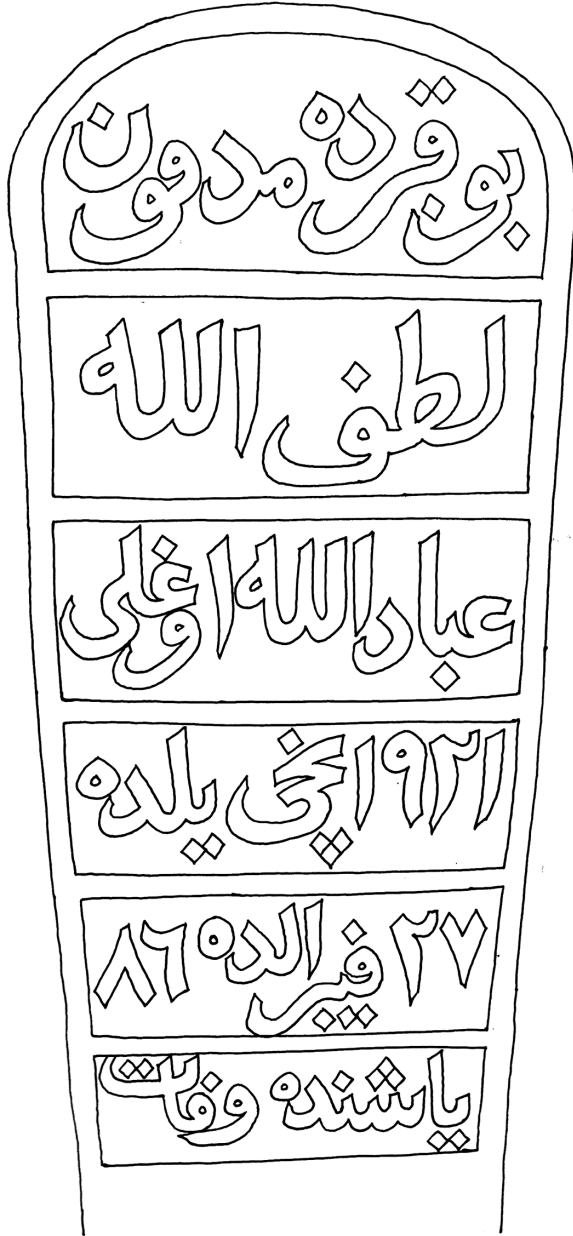 بو قرده مدفون
لطف الله
عباد الله اوغلی
١٩٢١ نچی یلده
٢٧ فیبرالده ٨٦
یاشنده وفات